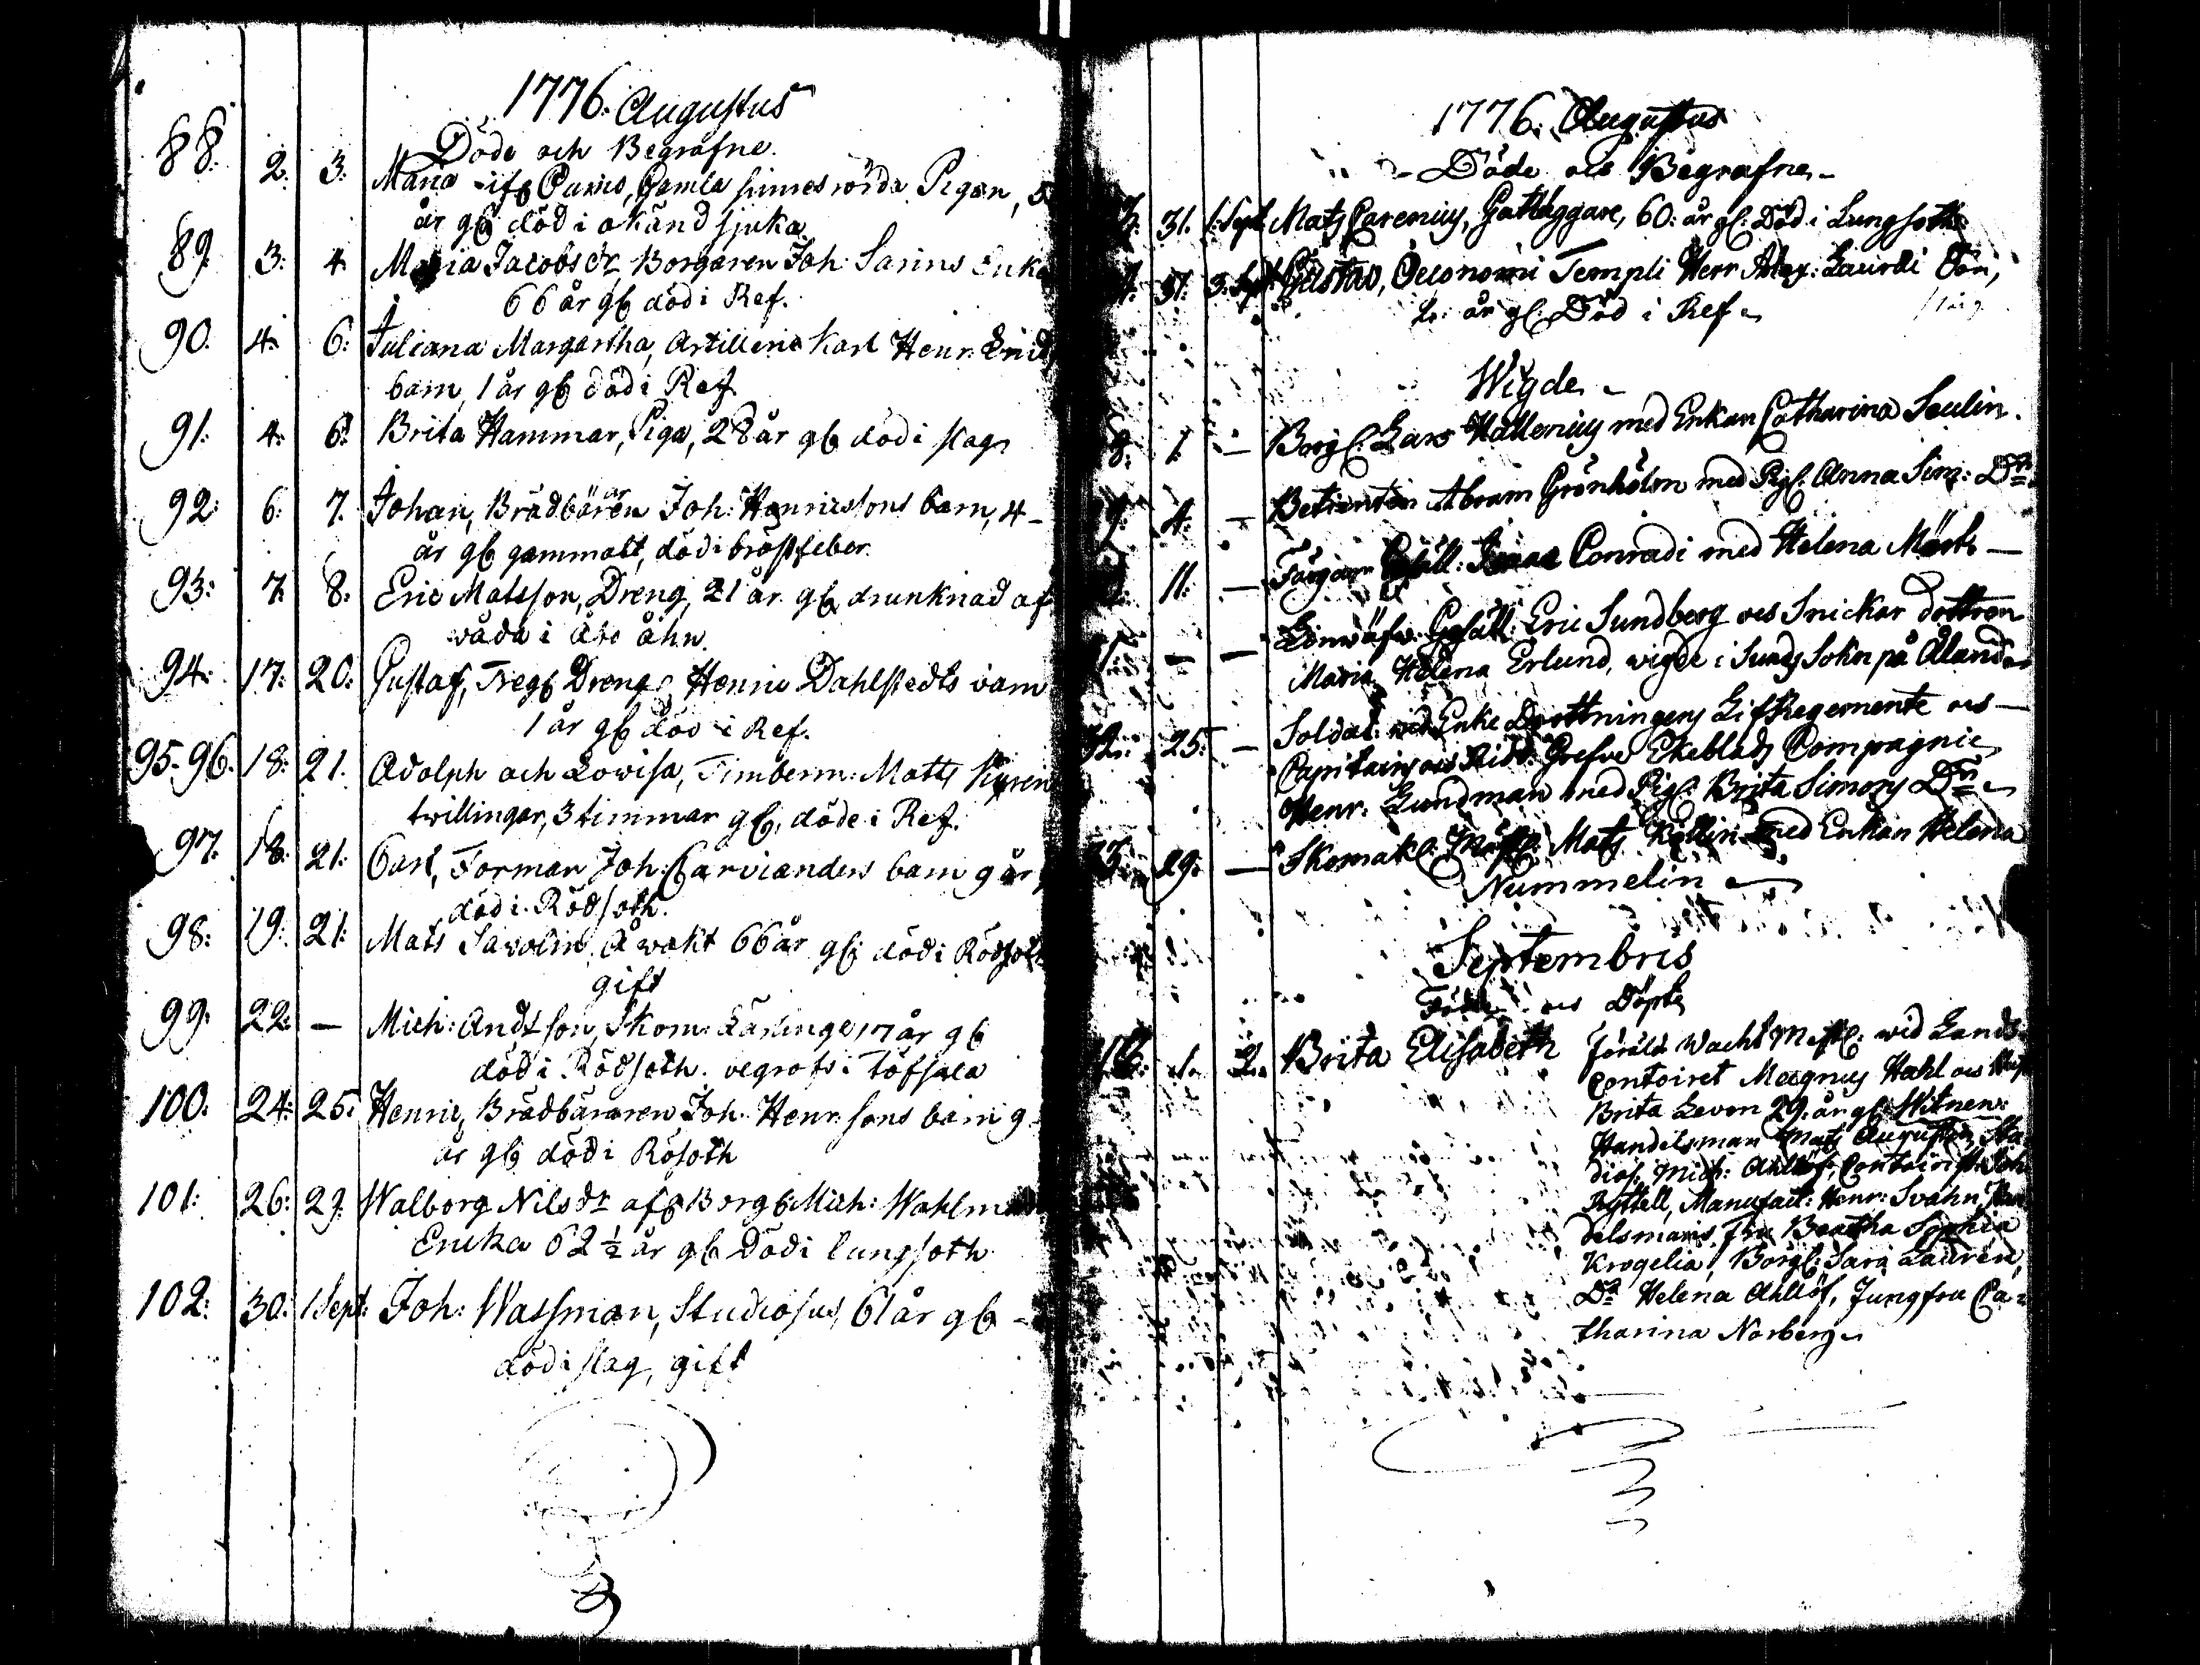 1776. Augustus
Döde och Begrafne.
88. 2. 3. Maria Gamla sinnesrörda Pigan, 5
år gl död i okänd sjuka.
89 3: 4 Maria Jacobs dr Borgaren Joh: Sarins Enka
66 år gl död i Ref.
90. 4. 6: Juliana Margartha, Artillerie Karl Henr.
barn, 1 år gl död i Ref
91. 4. 6: Brita Hammar, Piga, 28 år gl död i slag
92: 6: 7. Johan, Brädbäraren Joh: Henricssons barn, 4
år gl gammalt, död i bröstfeber.
93: 7. 8. Eric Matsson, Dreng, 21 år gl drunknad af
våda i Åbo åhn.
94. 17: 20: Gustaf, Tregl Dreng Henric Dahlstedts barn
1 år gl död i Ref.
95-96. 18: 21. Adolph och Lovisa, Timberm: Matts
twillingar, 3 timmar gl, döde i Ref.
97. 18. 21: Carl, Forman Joh: barn 9 år
död i Rödsoth.
98: 19: 21: Mats Savolin, Åwakt 66 år gl: död i Rödsoth
gift
99: 22: — Mich: Andsson, Skom: Lärlinge, 17 år gl
död i Rödsoth. begrafs i Töfsala
100: 24: 25: Henric, Brädbäraren Joh. Henr.sons barn 9
år gl död i Rösoth
101: 26: 29. Walborg Nils dr afl Borgl Mich: Wahlm
Encka 62 ½ år gl Död i lungsoth
102: 30: 1 Sept: Joh: Wassman, Studiosus, 61 år gl -
död i slag, gift
1776. Augustus
Döde och Begrafne
31. 1. Sept. Mats Carenius, Gatläggare, 60: år gl: Död i Lungsoth
31. 3. Sept Gustav, Oeconomi Templi Herr Alex: Laurdi Son,
år gl: Död i Ref
Wigde
8. 1. — Borgl: Lars Hallenius med Enkan Catharina Seulin.
9. 4. — Betienten Abram Grönholm med Pigl: Anna Sim: Dr
11. — Färgare Gesäll: Conradi med Helena Märts —
— — Gesäll: Eric Sundberg och Snickar dottren
Maria Helena Erlund, wigde i Sunds Sokn på Åland
32. 25. — Soldat: wid Enke Drottningens LifRegemente och —
Capitains och Ridd: Grefve Ekeblads Compagnie,
Henr. Lundman med Pigl: Brita Simons Dr
33. 29. — Skomakl: Mats Kellin med Enkan Helena
Nummelin
Septembris
Födde och Döpte
1. 2. Brita Elisabeth föräld: Wachtmstl: wid Lands
Contoiret Magnus Hahl och Hust
Brita Leven 29. år gl: Witnen:
Handelsman Mats Augustin, Stu
dios: Mich: Ahllöf, Contoirist: Joh
Ryttell, Manufact: Henr: Svahn, Han
delsmans Fru Beatha Sophia
Krogelia, Borgl: Sara Lauren,
Dr Helena Ahllöf, Jungfru Ca=
tharina Norberg